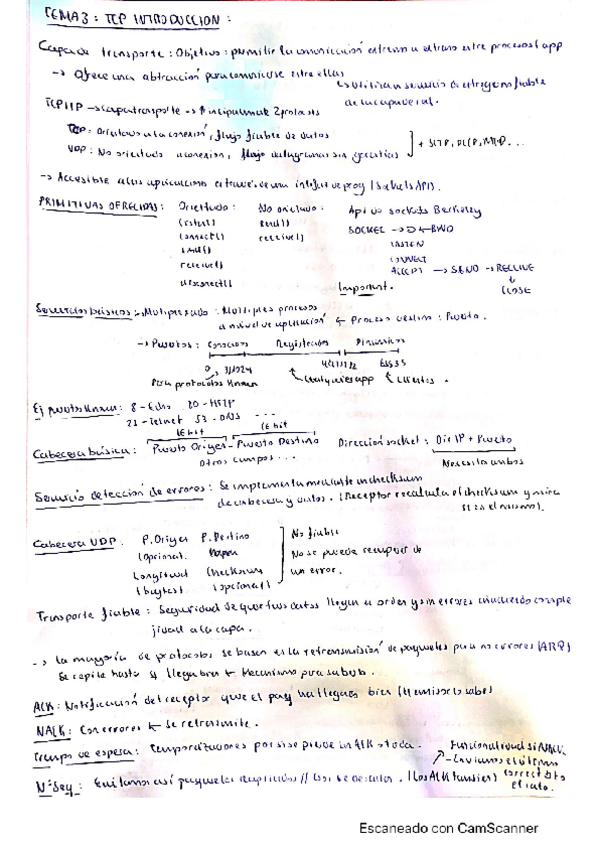 TEMA 3: TCP INTRODUCCION:
Capa de transporte: Objetivo: permitir la comunicación extremo a extremo entre procesos/app
-> Ofrece una abstracción para comunicarse entre ellas
utiliza un servicio de entrega no fiable
de la capa de red.
TCP/IP -> capa transporte -> Principalmente 2 protocolos
TCP: Orientado a la conexión, flujo fiable de datos
UDP: No orientado a conexión, flujo datagramas sin garantías
+ SCTP, DCCP, ...
-> Accesible a las aplicaciones a través de una interfaz de prog (Sockets API).
PRIMITIVAS OFRECIDAS: Orientado: No orientado: Api de sockets Berkeley
listen() send() SOCKET -> BIND
connect() receive() LISTEN
send() CONNECT
receive() ACCEPT -> SEND -> RECEIVE
disconnect() Important. CLOSE
Servicios básicos: Multiplexado: Múltiples procesos
a nivel de aplicación Proceso destino: Puerto.
-> Puertos: Conocidos Registrados Dinámicos
0 65535
Para protocolos Known Cualquier app Clientes.
Ej puertos Known: 8 - Echo 20 - HTTP
21 - Telnet 53 - DNS ...
16 bit 16 bit
Cabecera básica: Puerto Origen - Puerto Destino Dirección socket: Dir IP + Puerto
Otros campos... Necesita ambos
Servicio detección de errores: Se implementa mediante un checksum
de cabecera y datos. (Receptor recalcula el checksum y mira
si es el mismo).
Cabecera UDP: P. Origen P. Destino No fiable
(opcional) No se puede recuperar de
Longitud Checksum un error.
(bytes) (opcional)
Transporte fiable: Seguridad de que tus datos llegan en orden y sin errores añadiendo comple
jidad a la capa.
-> La mayoría de protocolos se basan en la retransmisión de paquetes para no errores (ARQ)
Se repite hasta q llega bien Mecanismo para saberlo.
ACK: Notificación del receptor que el paq ha llegado bien (El emisor lo sabe)
NACK: Con errores Se retransmite.
Tiempo de espera: Temporizadores por si se pierde un ACK o tarda.
Nº Seq: Evitamos así paquetes duplicados // (Los ACK también)
Escaneado con CamScanner